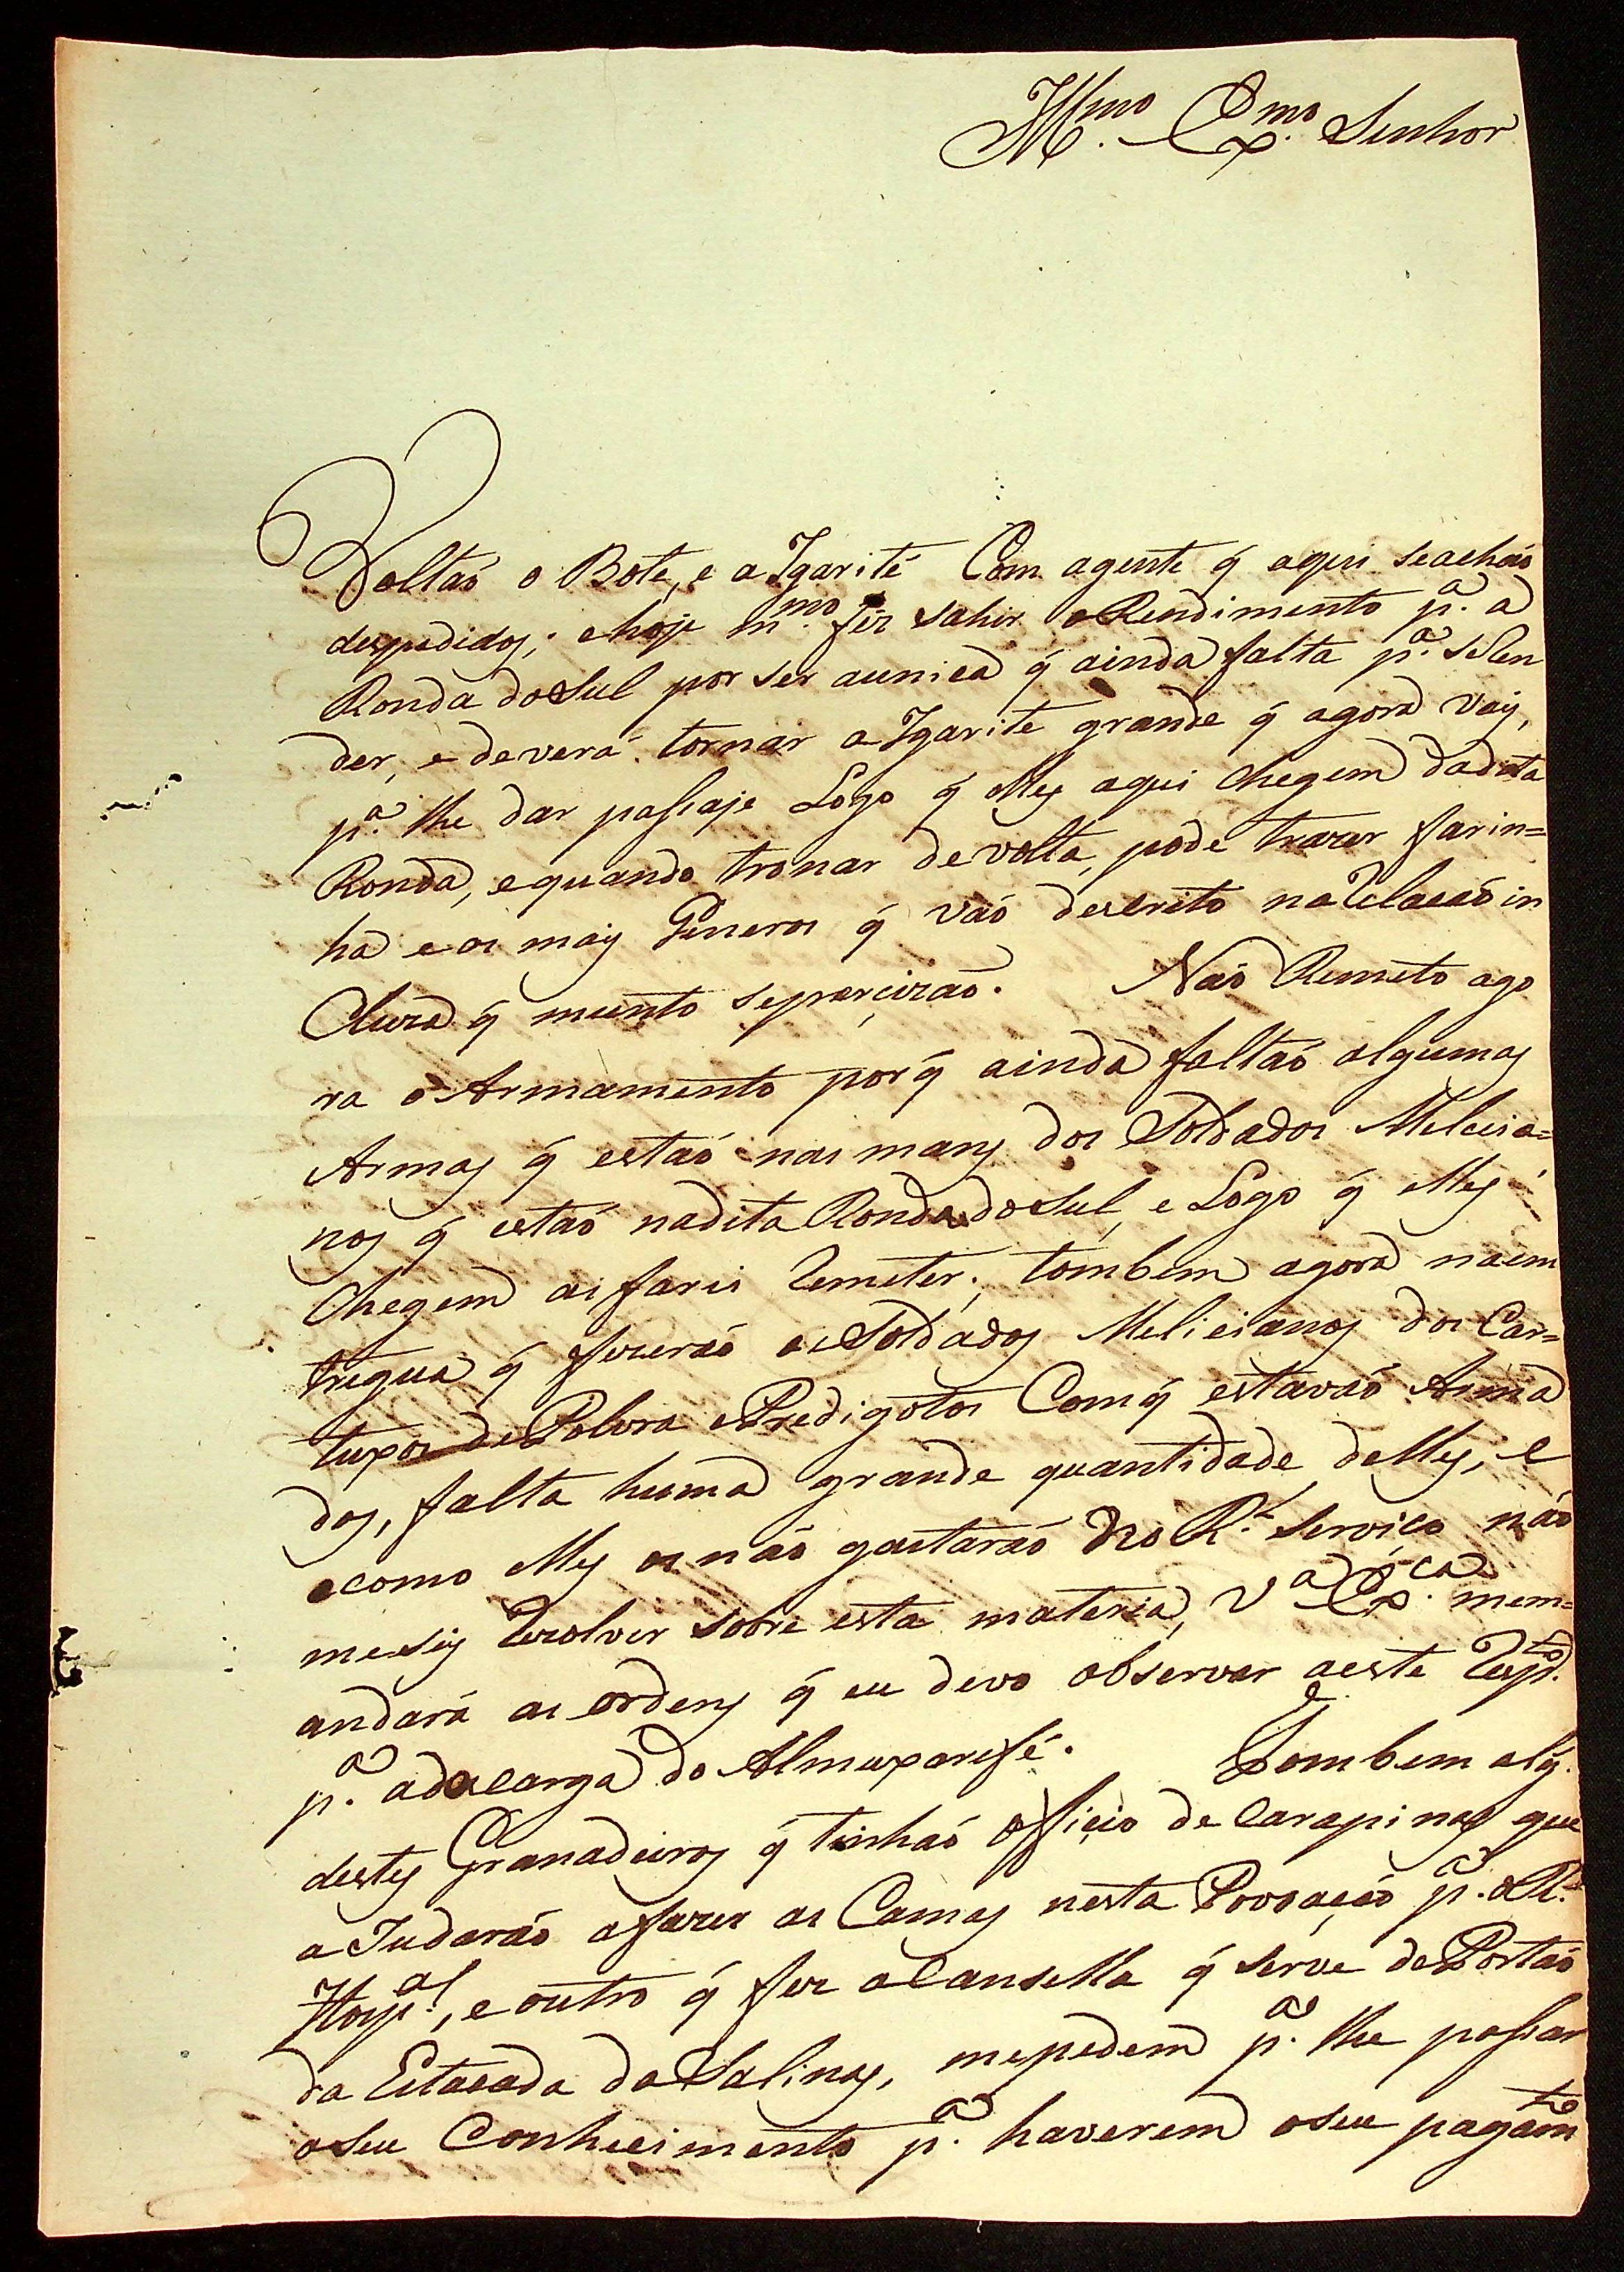 Illmo. Exmo. Senhor
Voltaõ o Bote, e a Igarité Com agente q̃ aqui seachaõ
despedidos; ehoje mmo. fés sahir o Rendimento pa. a
Ronda do Sul por ser aunica q̃ ainda falta pa. se Ren
der, e deverá tornar a Igarite grande q̃ agora vay,
pa. lhe dar passaje Logo q̃ elles aqui Chegem dadita
Ronda, equando tronar devolta, pode trazer farin=
ha e os mais Generos q̃ vaõ descrito na Relacaõ in
Cluza q̃ muinto separcizaõ. Naõ Remeto ago
ra o Armamento porq̃ ainda faltaõ algumas
Armas q̃ estaõ nas mans dos Soldados Meleicia=
nos q̃ estaõ nadita Ronda do Sul, e Logo q̃ elles
Chegem as farei Remeter; tombem agora naem
tregua q̃ fizeraõ os Soldados Melicianos dos Car=
tuxos de Polvra e Predigotos Comq̃ estavaõ Arma
dos, falta huma grande quantidade delles, e
ecomo elles os naõ gastaraõ no Rl. Serviço naõ
mesey Rezolver sobre esta materia, Va. Exca. mem=
andará as ordens q̃ eu devo observar aeste Respto.
pa. adescarga do Almuxarifé. Tombem alg̃.
destes Granadeiros q̃ tinhaõ officio de Carapinas que
aJudaraõ afazer as Camas nesta Povoaçaõ pa. o Rl.
Hospal., e outro q̃ fez aCansella q̃ serve de Portaõ
da Estacada da Salinas, mepedem pa. lhe passar
oseu Conhecimento pa. haverem oseu pagamto